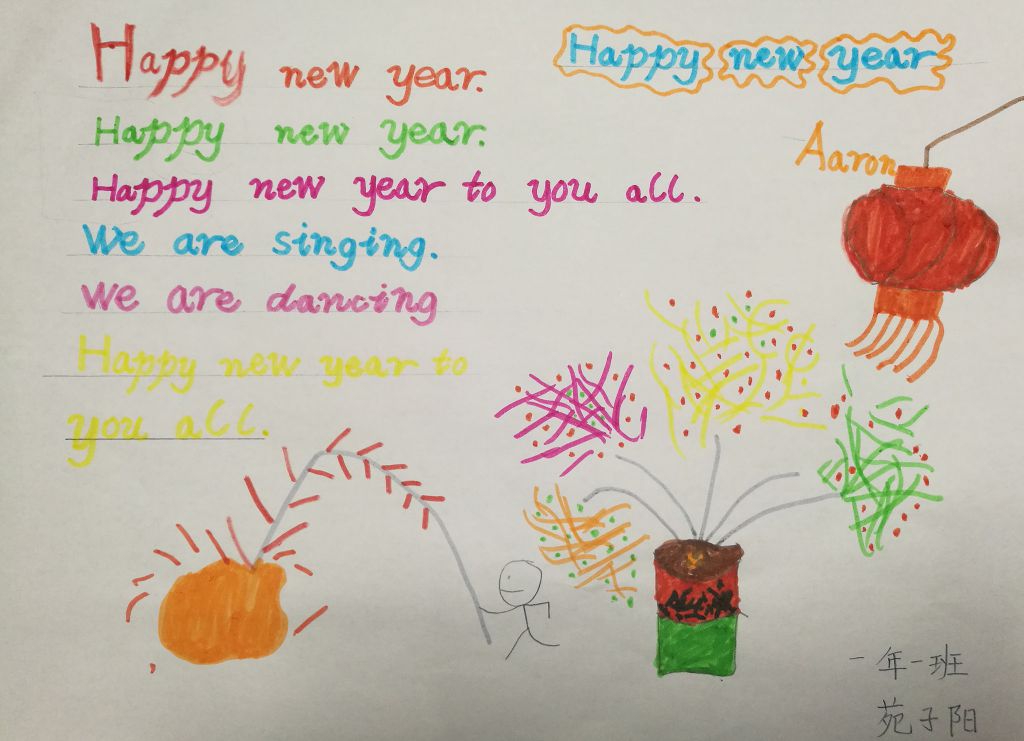 Happy new year.
Happy new year
Happy new year.
Aaron
Happy new year to you all.
We are singing.
We are dancing
Happy new year to
you all.
一年一班
苑子阳